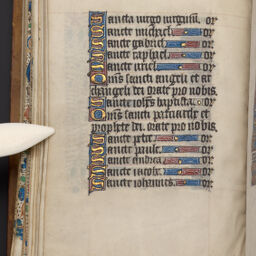 Sancta virgo virginu͂. or
Sancte michael or
Sancte gabriel or
Sancte raphael or
Sancte uriel or
Om̃s sancti angeli et ar
changeli dei orate pro nobis.
Sancte ioħes baptista or
Om̃s sancti patriarche et
prophete dei. orate pro nobis.
Sancte petre or
Sancte paule. or
Sancte andrea or
Sancte iacobe or
Sancte iohannes. or